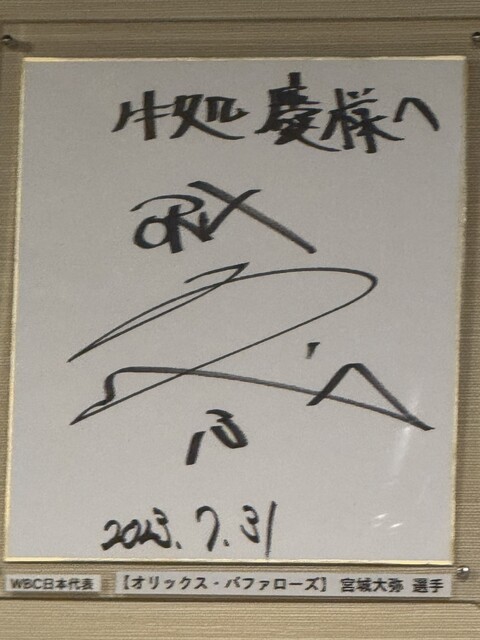 牛処 慶様へ
ORIX
18
2023.7.31
WBC日本代表 【オリックス・バファローズ】 宮城大弥 選手